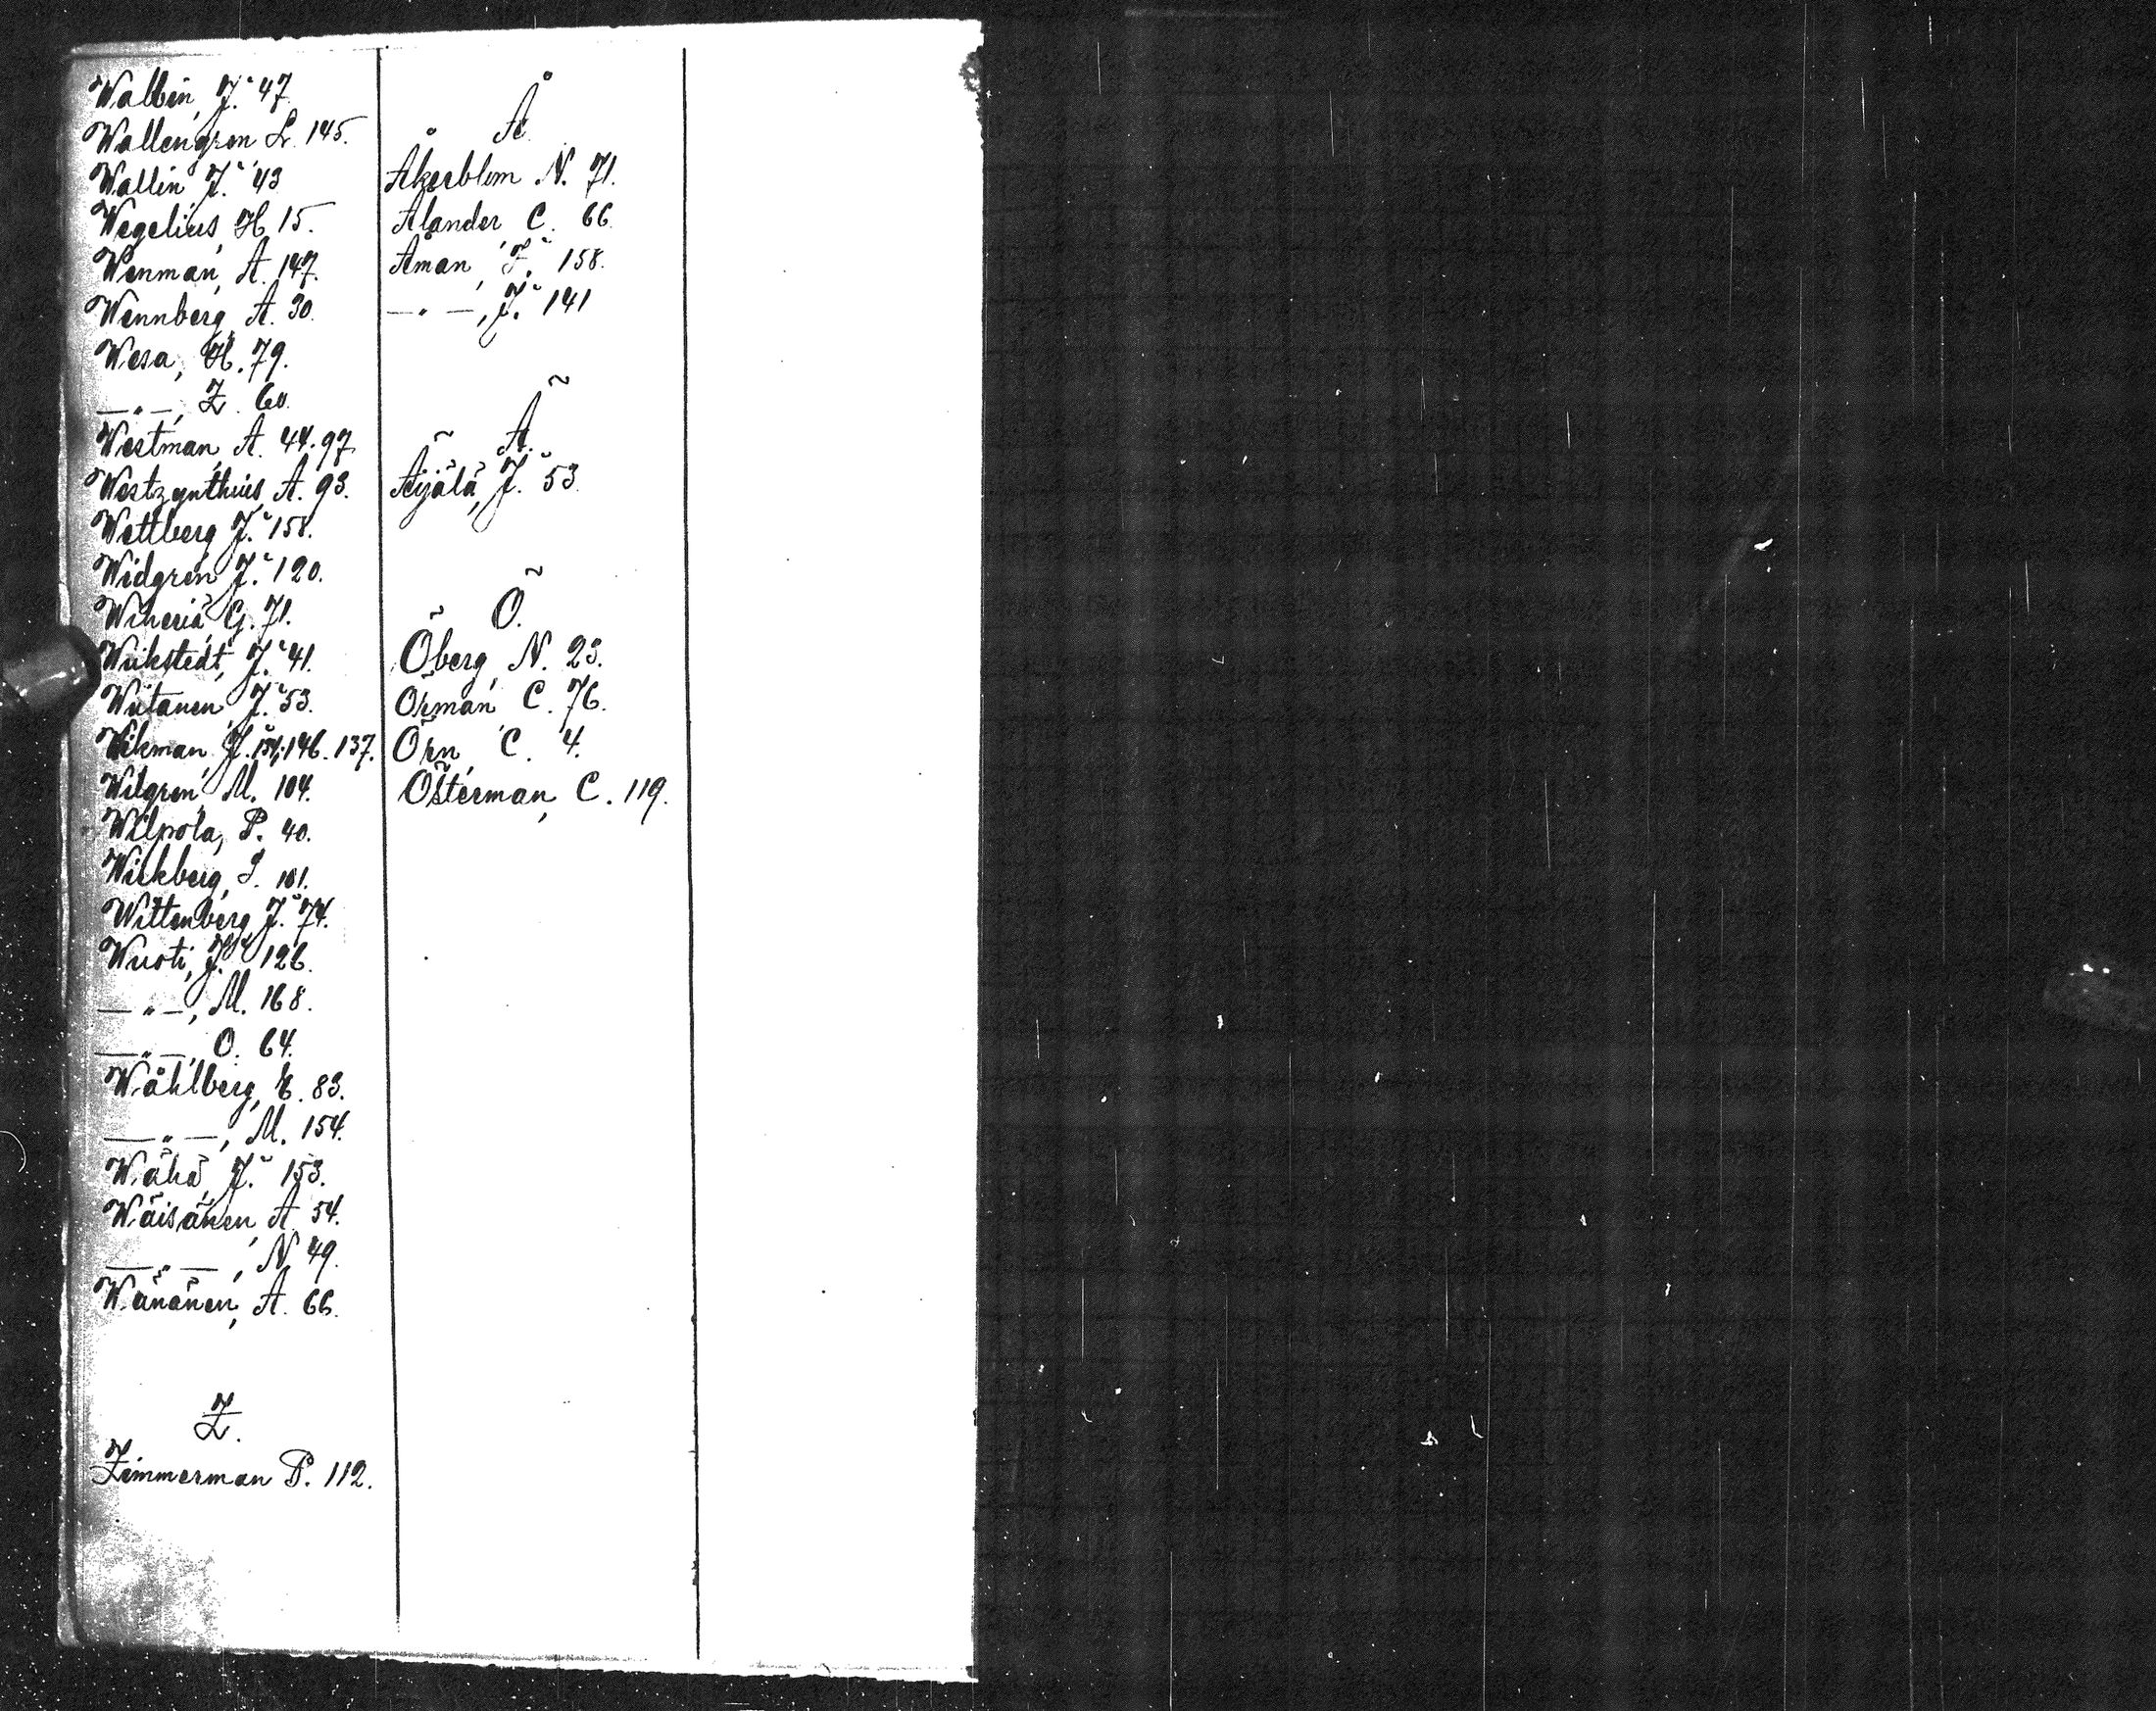 Wallin, J. 47
Wallengren L. 145.
Wallin J. 43
Wegelius, H. 15.
Wenman, A. 147.
Wennberg, A. 30.
Wesa, H. 79.
—„—, Z. 60.
Westman, A. 44. 97
Westzynthius, A. 93.
Wettberg J. 158.
Widgren, J. 120.
Wiheriä, G. 71.
Wiikstedt, J. 41.
Wiitanen, J. 53.
Wikman, J. 151, 146. 137.
Wilgren, M. 104.
Wilpola, P. 40.
Wirkberg, S. 101.
Wittenberg, J. 74.
Wuoti, J. 126.
—„—, M. 168.
—„—, O. 64.
Wåhlberg, E. 83.
—„—, M. 154.
Wähä, J. 153.
Wäisänen, A. 54.
—„—, N. 49.
Wänänen, A. 66.
Z.
Zimmerman P. 112.
Å
Åkerblom N. 71.
Ålander C. 66.
Åman, F. 158.
—„—, J. 141
Ä.
Äijälä, J. 53.
Ö.
Öberg, N. 23.
Öhman, C. 76.
Örn, C. 4.
Österman, C. 119.